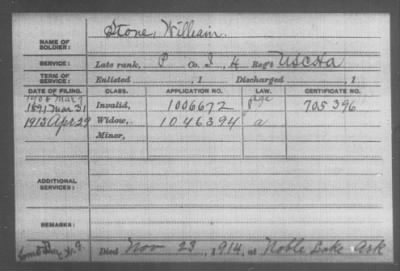 NAME OF SOLDIER: Stone, William.
SERVICE: Late rank, P Co. I, H Reg't USCHa
TERM OF SERVICE: Enlisted , 1 Discharged , 1
DATE OF FILING. CLASS. APPLICATION NO. LAW. CERTIFICATE NO.
1908 Mar
1891 Mar 31 Invalid, 1006672 705396
1915 Apr 29 Widow, 1046394 a
Minor,
ADDITIONAL SERVICES:
REMARKS:
Died Nov 23, 1914, at Noble Lake Ark